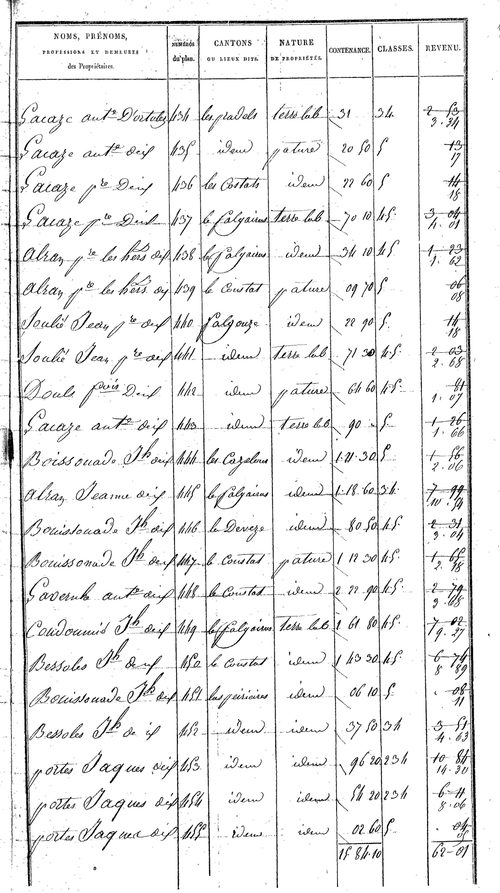 NOMS, PRÉNOMS, PROFESSIONS ET DEMEURES des Propriétaires. NUMÉROS du plan. CANTONS OU LIEUX DITS. NATURE DE PROPRIÉTÉS. CONTENANCE. CLASSES. REVENU.
Lacaze ant.e D'ortoles 434 les pradels terre lab 31 3.4 2 53 3.34
Lacaze ant.e dix 435 idem pature 20 50 5 13 17
Lacaze p.re Dix 436 les Costats idem 22 60 5 14 18
Lacaze p.re Dix 437 le falgairas terre lab 70 10 4.5 3 04 4.01
Alran p.re les hérs dix 438 le falgairas idem 34 10 4.5 1 23 1.62
Alran p.re les hérs dix 439 le Constat pature 09 70 5 06 08
Soulié Jean p.re dix 440 falgouze idem 22 90 5 14 18
Soulié Jean p.re dix 441 idem terre lab 71 30 4.5 2 03 2.68
Douls Dix 442 idem pature 64 60 4.5 81 1.07
Lacaze ant.e dix 443 idem terre lab 90 5 1 26 1.66
Boissonade Jh dix 444 les Cazelous idem 1 11 30 5 1 56 2.06
Alran Jeanne dix 445 le falgairas idem 1 18 60 3.4 7 99 10.54
Bouissonade Jh dix 446 le Deveze idem 80 50 4.5 2 31 3.04
Bouissonade Jh dix 447 le Constat pature 1 12 30 4.5 1 65 2.18
ant.e dix 448 le Constat idem 2 22 90 4.5 2 79 3.68
Coudoumis Jh dix 449 le falgairas terre lab 2 61 80 4.5 7 02 9.27
Bessoles Jh dix 450 le Constat idem 1 43 30 4.5 6 74 8 89
Bouissonade Jh dix 451 las peirieires idem 06 10 5 08 11
Bessoles Jh dix 452 idem idem 37 50 3.4 3 51 4.63
portes Jaques dix 453 idem idem 96 20 2 3 4 10 84 14.30
portes Jaques dix 454 idem idem 54 20 2 3 4 6 11 8.06
portes Jaques dix 455 idem idem 02 60 5 04 05
15 84 10 62 01